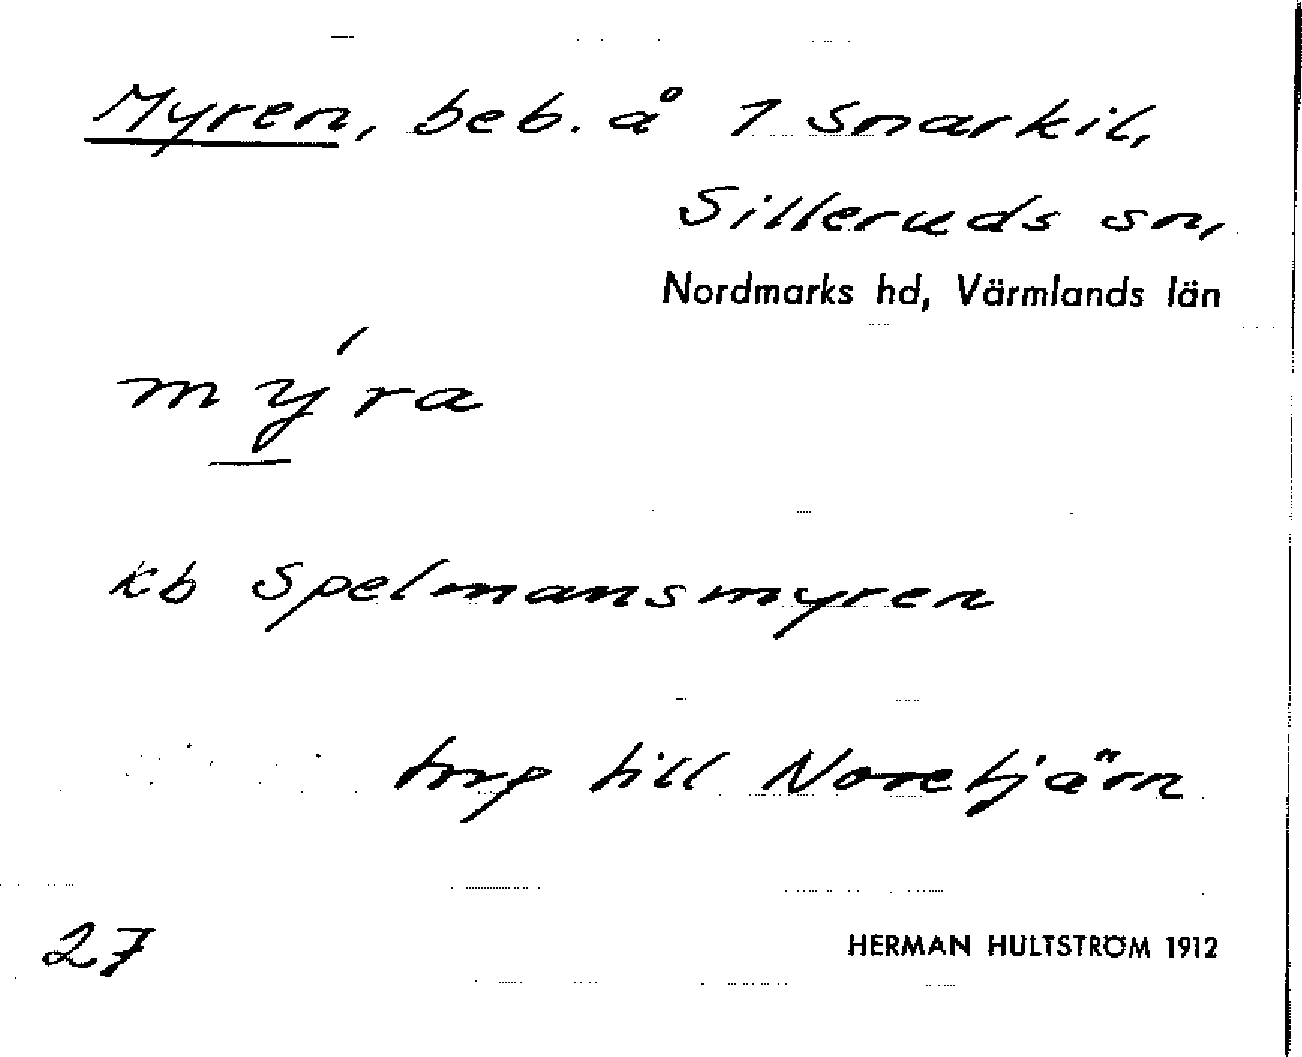 Myren, beb. å 1 Snarkil,
Silleruds sn,
Nordmarks hd, Värmlands län
mýra
kb Spelmansmyren
torp till Noretjärn
27 HERMAN HULTSTRÖM 1912